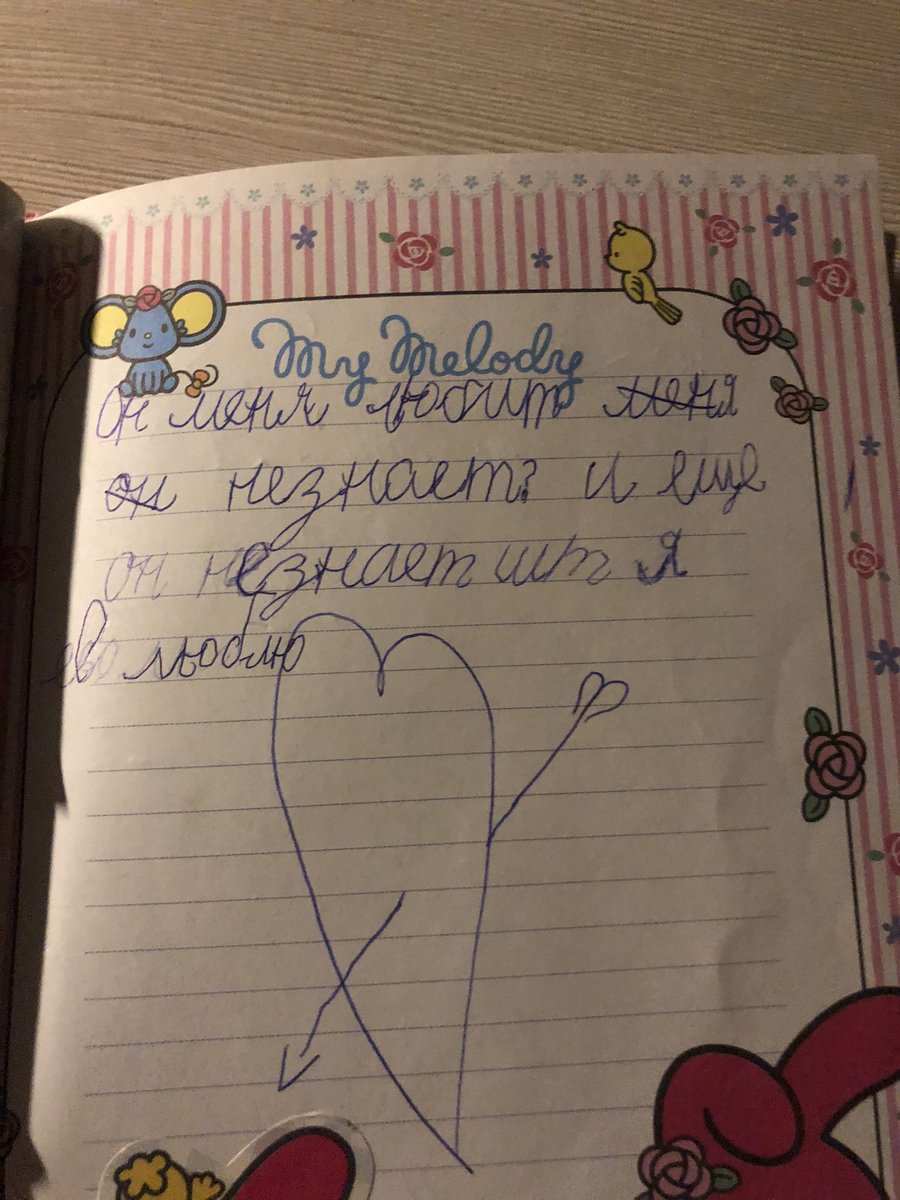 My Melody
он меня любит меня
он незнает? и еще
он незнает шт я
ево люблю